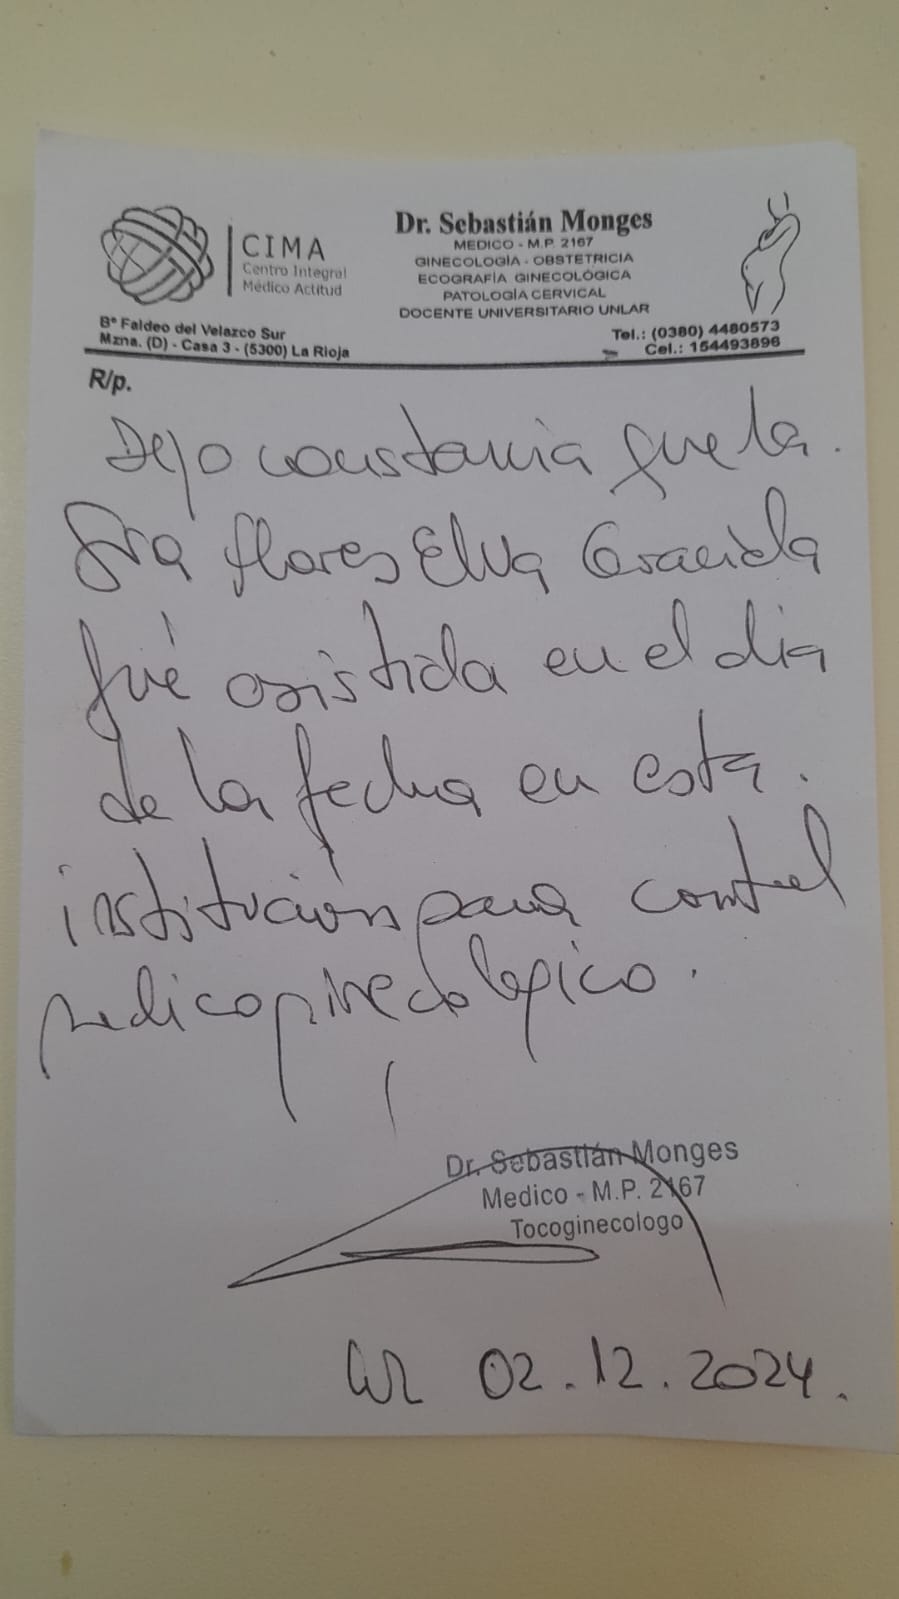 CIMA
Centro Integral
Médico Actitud
Dr. Sebastián Monges
MEDICO - M.P. 2167
GINECOLOGÍA - OBSTETRICIA
ECOGRAFÍA GINECOLÓGICA
PATOLOGÍA CERVICAL
DOCENTE UNIVERSITARIO UNLAR
Bº Faldeo del Velazco Sur
Mzna. (D) - Casa 3 - (5300) La Rioja
Tel.: (0380) 4480573
Cel.: 154493896
R/p.
Dejo constancia que la
Sra flores Elva Gracida
fué asistida en el dia
de la fecha en esta
institución para control
medico ginecologico.
Dr. Sebastián Monges
Medico - M.P. 2167
Tocoginecologo
LR 02.12.2024.